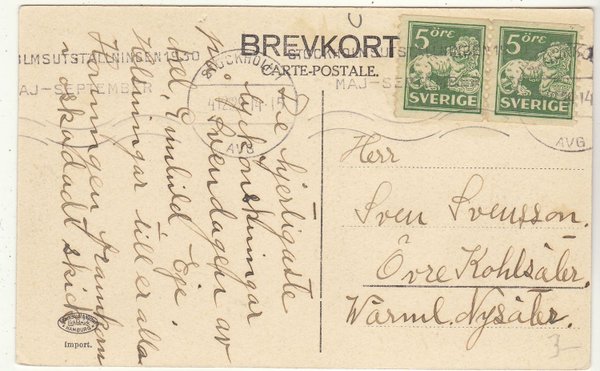 BREVKORT
CARTE-POSTALE.
5 ÖRE
SVERIGE
5 ÖRE
SVERIGE
STOCKHOLMSUTSTÄLLNINGEN 1930
MAJ-SEPTEMBER
STOCKHOLM
AVG
OLMSUTSTÄLLNINGEN 1930
MAJ-SEPTEMBER
AVG
De hjertligaste
lyckönskningar
på Svendagen av
Axel, Gunhild, Eje
Helsningar till er alla
Hörningen framkom
oskadadt skick
Herr
Sven Svensson.
Övre Kohlsäter.
Värml. Nysäter.
HAMBURG
Import.
3-